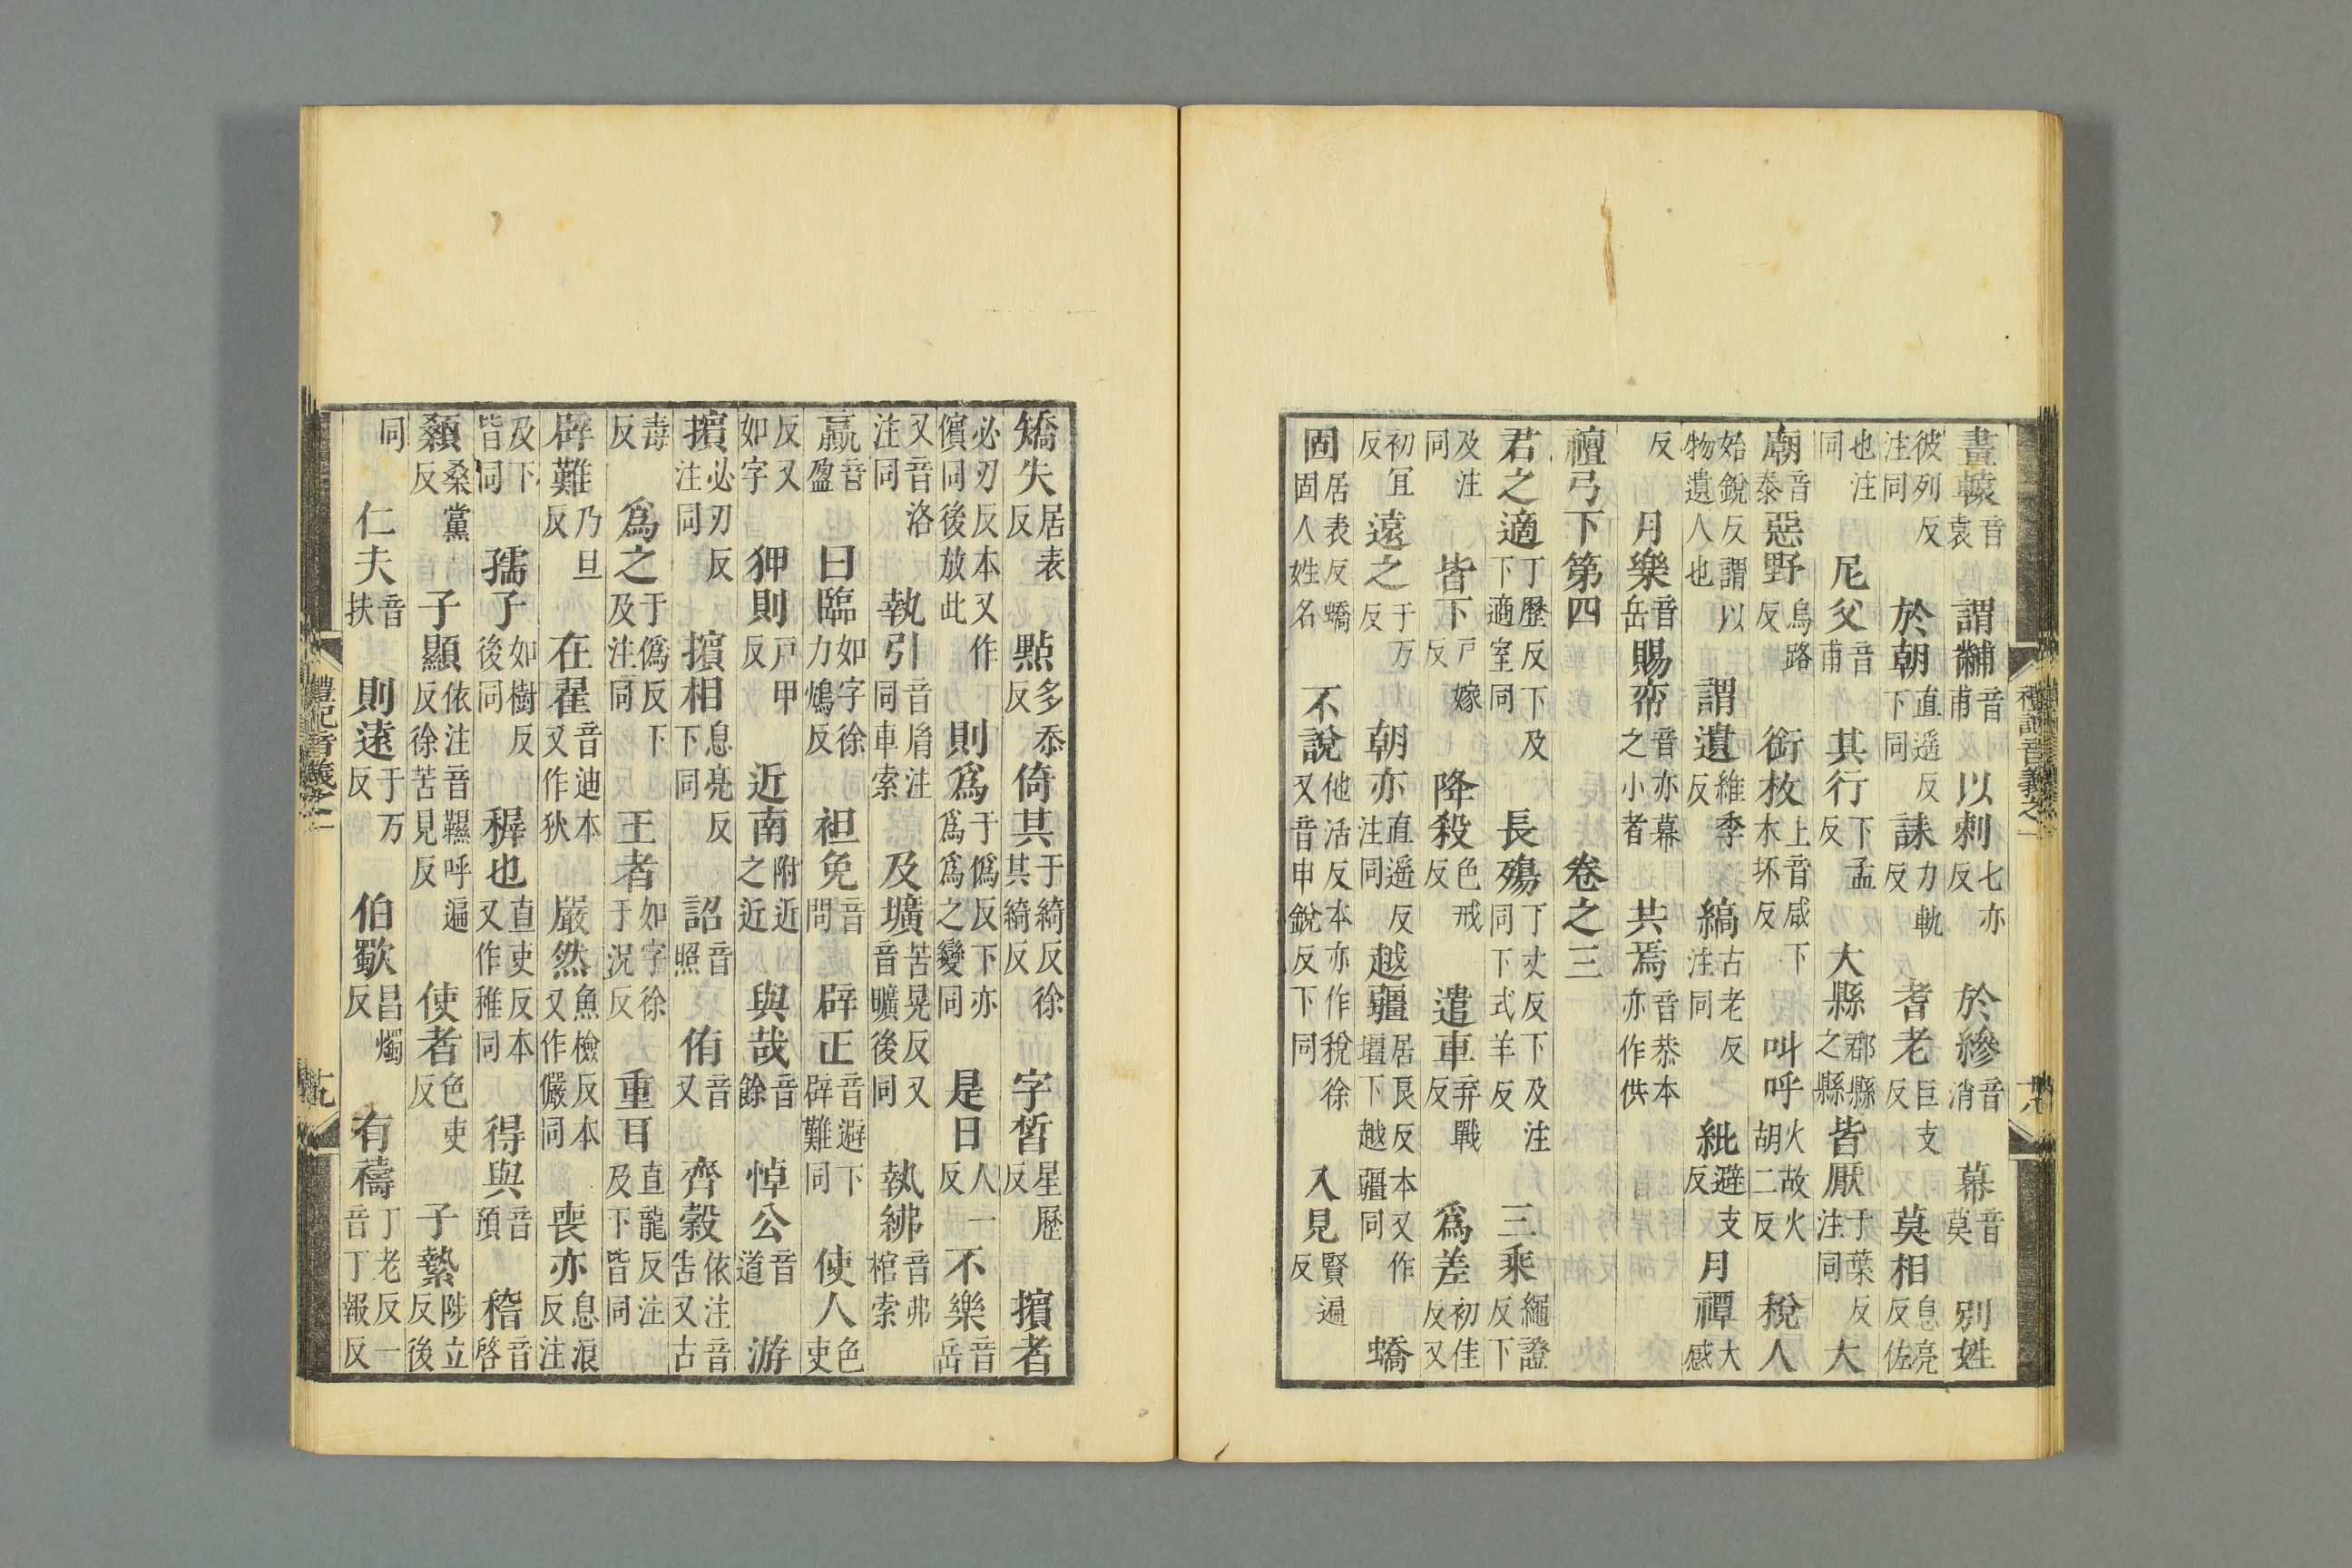 畫轅音袁　謂黼音甫　以刺七亦反　於縿音消　幕音莫　別姓
彼列反注同　於朝直遥反下同　誄力軌反　耆老巨支反　莫相息亮反佐
也注同　尼父音甫　其行下孟反　大縣郡縣之縣　皆厭于葉反注同　大
廟音泰　惡野烏路反　銜枚上音咸下木坏反　叫呼火故火胡二反　稅人
始銳反謂以物遺人也　謂遺維季反　縞古老反注同　紕避支反　月禫大感
反　月樂音岳　賜帟音亦幕之小者　共焉音恭本亦作供
檀弓下第四　卷之三
君之適丁歷反下及下適室同　長殤丁丈反下及注同下式羊反　三乘繩證反下
及注同　皆下戸嫁反　降殺色戒反　遣車弃戰反　爲差初佳反又
初宜反　遠之于万反　朝亦直遥反注同　越疆居艮反本又作壇下越疆同　蟜
固居表反蟜固人姓名　不說他活反本亦作稅徐又音申銳反下同　入見賢遍反
禮記音義之一
十八
矯失居表反　點多忝反　倚其于綺反徐其綺反　字晳星歷反　擯者
必刃反本又作儐同後放此　則爲于僞反下亦爲爲之變同　是日人一反　不樂音岳
又音洛注同　執引音胤注同車索　及壙苦晃反又音曠後同　執紼音弗棺索
贏音盈　曰臨如字徐力鴆反　袒免音問　辟正音避下辟難同　使人色吏
反又如字　狎則戸甲反　近南附近之近　與哉音餘　悼公音道　游
擯必刃反注同　擯相息亮反下同　詔音照　侑音又　齊穀依注音告又古
毒反　爲之于僞反下及注同　王者如字徐于況反　重耳直龍反注及下皆同
辟難乃旦反　在翟音迪本又作狄　嚴然魚檢反本又作儼同　喪亦息浪反注
及下皆同　孺子如樹反後同　稺也直吏反本又作稚同　得與音預　稽音啓
顙桑黨反　子顯依注音韅呼遍反徐苦見反　使者色吏反　子縶陟立反後
同　仁夫音扶　則遠于万反　伯歜昌燭反　有禱丁老反一音丁報反
禮記音義之一
十九